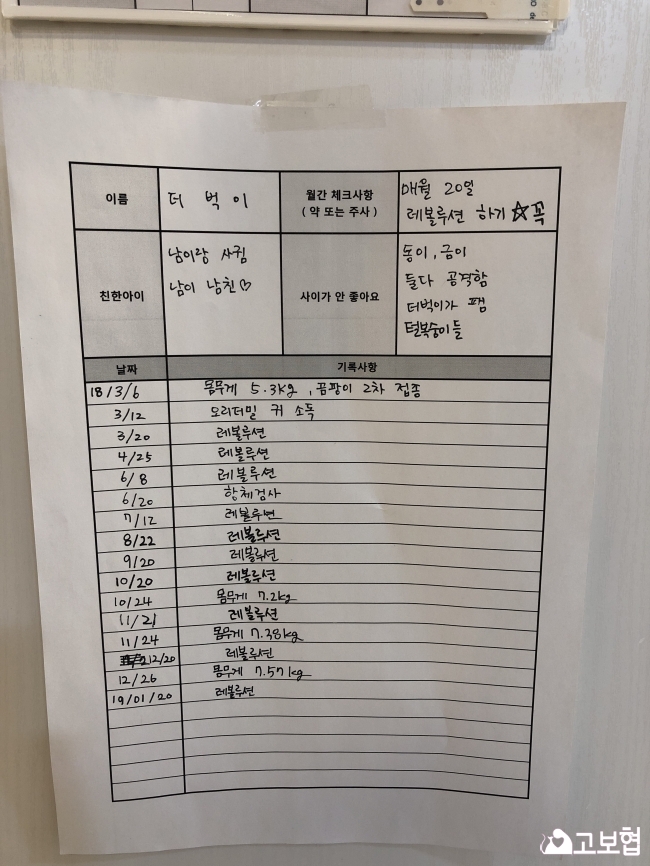 이름
더벅이
월간 체크사항
( 약 또는 주사 )
매월 20일
레볼루션 하기 ☆꼭
친한아이
남이랑 사귐
남이 남친♡
사이가 안 좋아요
동이, 금이
둘다 공격함
더벅이가 팸
털복숭이들
날짜 기록사항
18/3/6 몸무게 5.3kg, 곰팡이 2차 접종
3/12 오리더밀 귀 소독
3/20 레볼루션
4/25 레볼루션
6/8 레볼루션
6/20 항체검사
7/12 레볼루션
8/22 레볼루션
9/20 레볼루션
10/20 레볼루션
10/24 몸무게 7.2kg
11/21 레볼루션
11/24 몸무게 7.38kg
12/20 레볼루션
12/26 몸무게 7.57kg
19/01/20 레볼루션
고보협